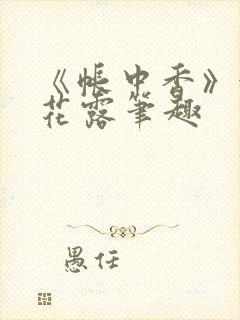 《帐中香》
花露笔趣
愚任